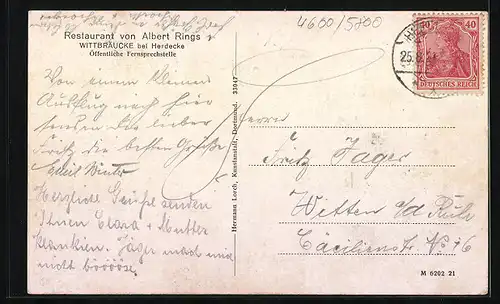 4600/5800
Restaurant von Albert Rings
WITTBRÄUCKE bei Herdecke
Öffentliche Fernsprechstelle
40
DEUTSCHES REICH
Von einem kleinen
Ausflug nach hier
senden Dir lieber
Fritz die besten Grüße
Herzliche Grüße senden
Ihnen Clara + Mutter
Jäger mach mich
nicht böööse.
Hermann Lorch, Kunstanstalt, Dortmund. 31047
Herrn
Fritz Jäger
Witten a/d Ruhr
Cäcilienstr. No 16
M 6202 21